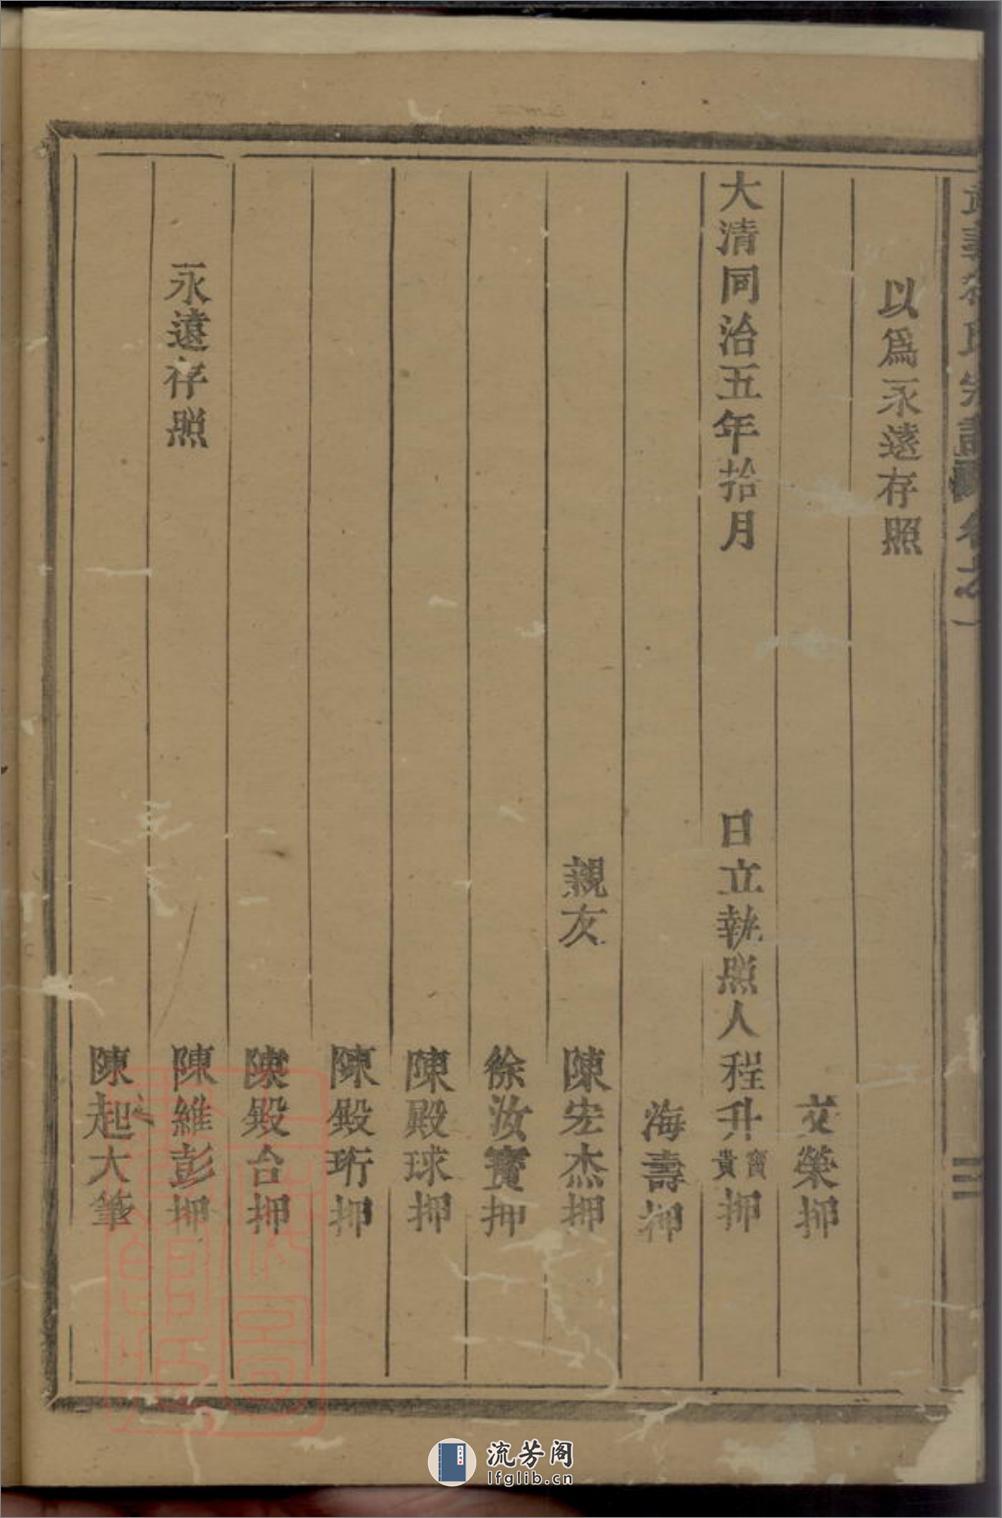 以爲永遠存照
文榮押
大清同治五年拾月　日立執照人程升寶貴押
海壽押
親友　陳宏杰押
徐汝寶押
陳殿球押
陳殿珩押
陳殿台押
永遠存照　陳維彭押
陳起大筆
氏宗譜 卷之一
流芳阁
lfglib.cn